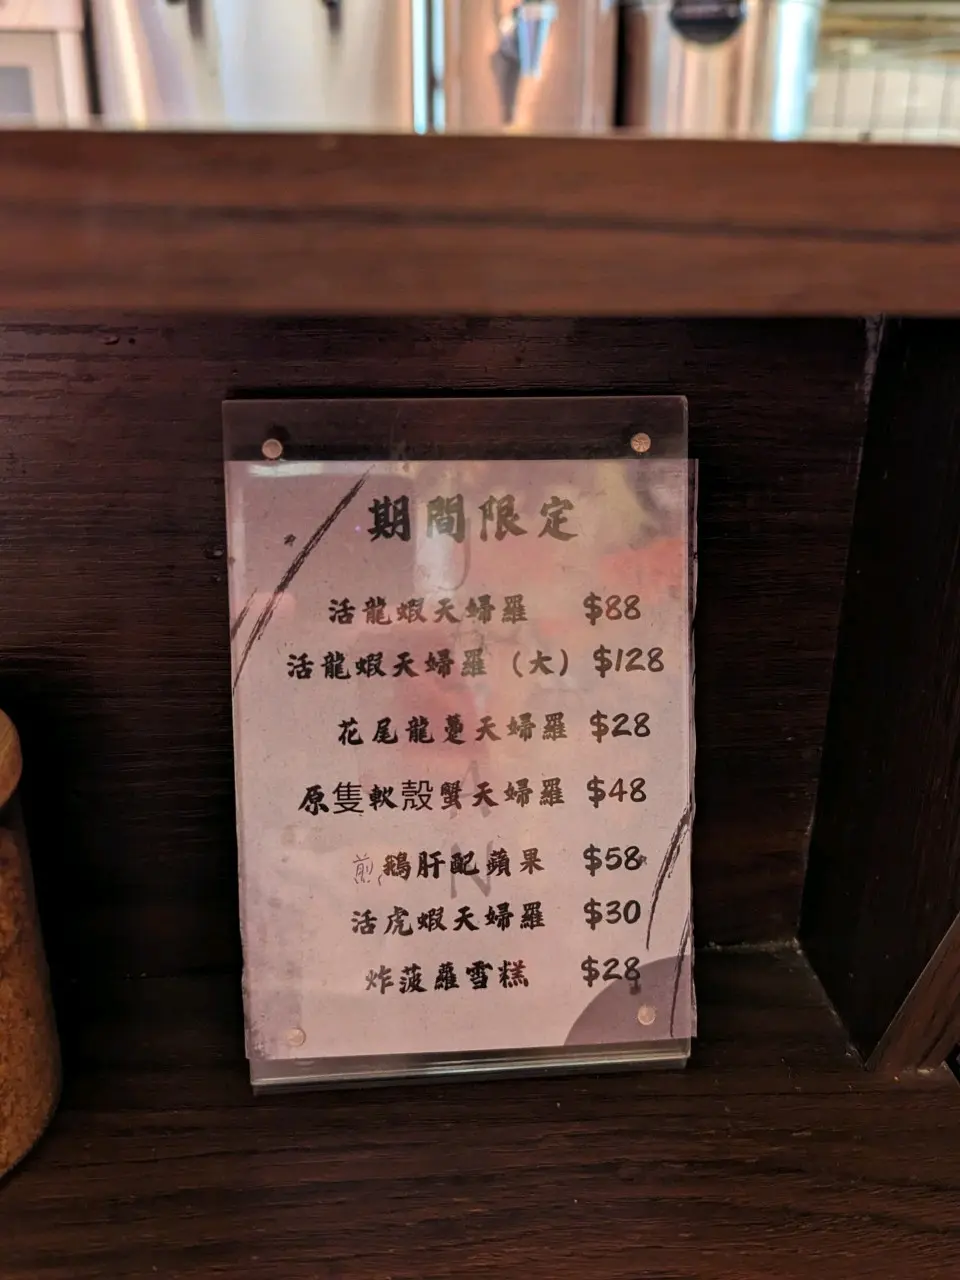 期間限定
活龍蝦天婦羅 $88
活龍蝦天婦羅 (大) $128
花尾龍躉天婦羅 $28
原隻軟殼蟹天婦羅 $48
煎鵝肝配蘋果 $58
活虎蝦天婦羅 $30
炸菠蘿雪糕 $28